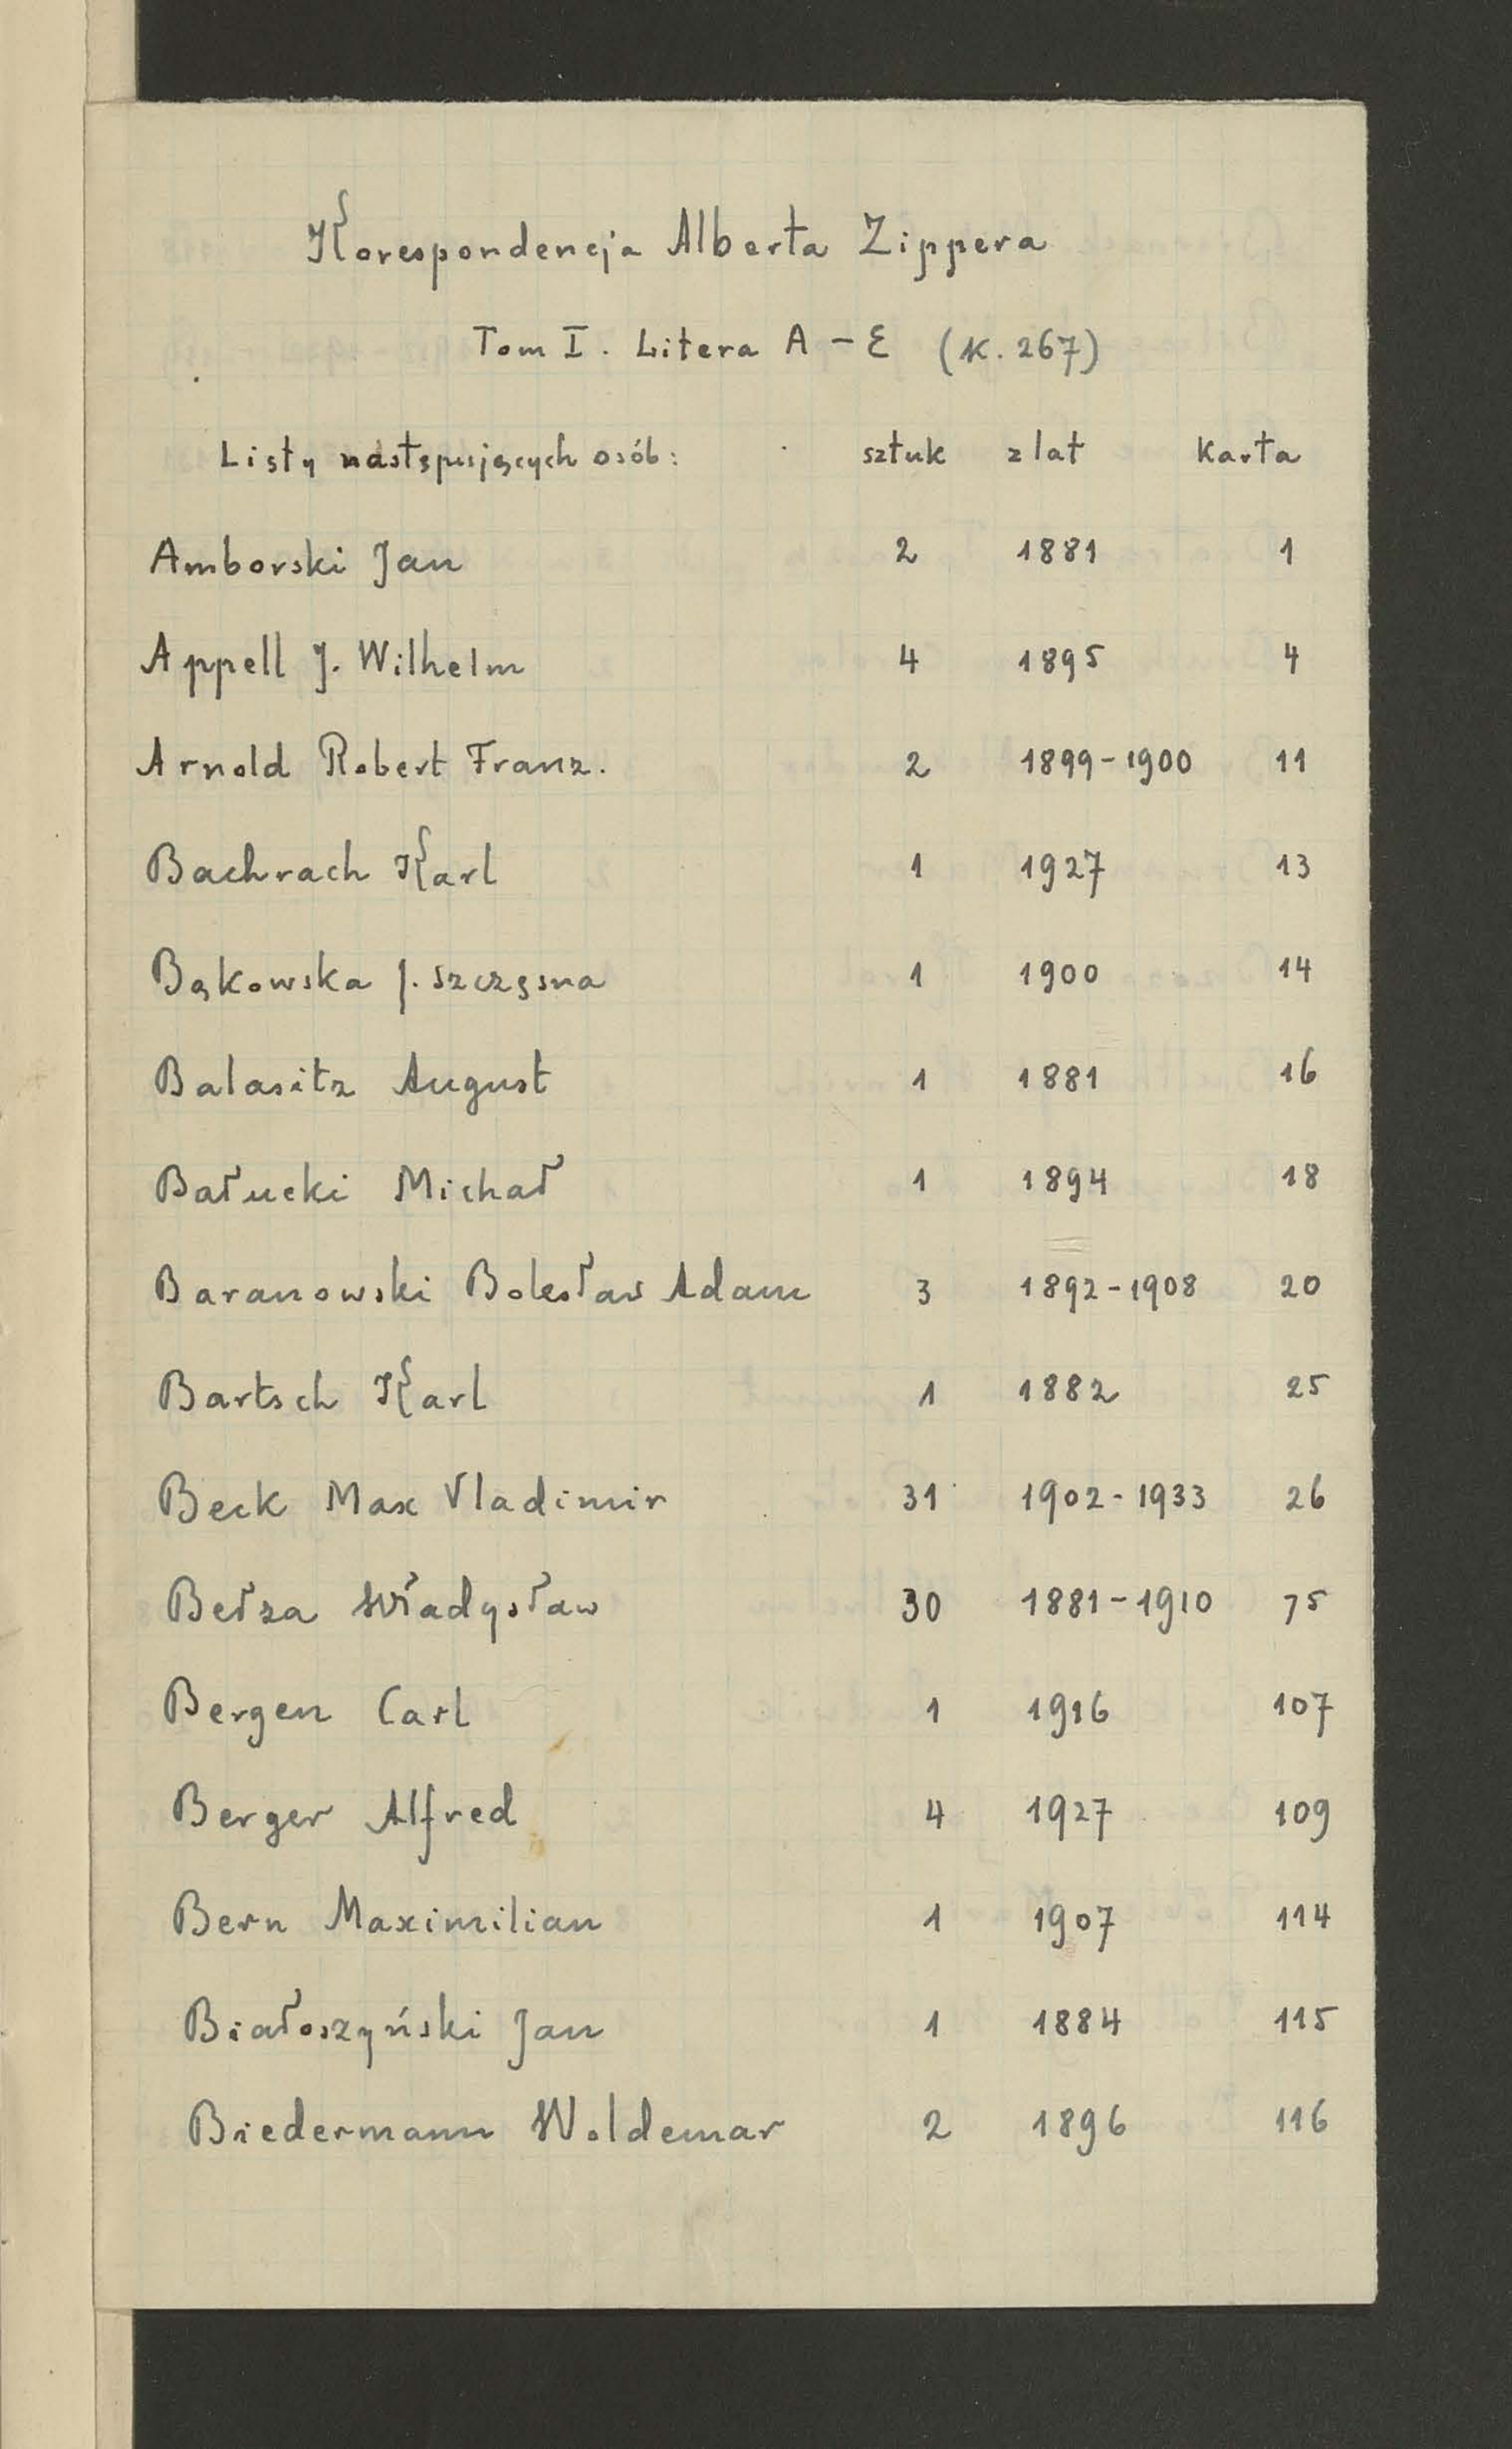 Korespondencja Alberta Zippera
Tom I. Litera A - E (K. 267)
Listy następujących osób: sztuk z lat Karta
Amborski Jan 2 1881 1
Appell J. Wilhelm 4 1895 4
Arnold Robert Franz. 2 1899-1900 11
Bachrach Karl 1 1927 13
Bąkowska J. Szczęsna 1 1900 14
Balasitz August 1 1881 16
Bałucki Michał 1 1894 18
Baranowski Bolesław Adam 3 1892-1908 20
Bartsch Karl 1 1882 25
Beck Max Vladimir 31 1902-1933 26
Bełza Władysław 30 1881-1910 75
Bergen Carl 1 1916 107
Berger Alfred 4 1927 109
Bern Maximilian 1 1907 114
Białoszyński Jan 1 1884 115
Biedermann Woldemar 2 1896 116